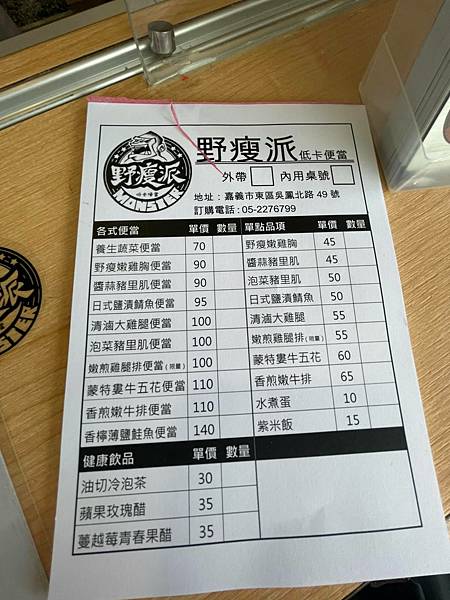 野瘦派
MONSTER
野瘦派 低卡便當
外帶 內用桌號
地址：嘉義市東區吳鳳北路 49 號
訂購電話：05-2276799
各式便當 單價 數量
養生蔬菜便當 70
野瘦嫩雞胸便當 90
醬蒜豬里肌便當 90
日式鹽漬鯖魚便當 95
清滷大雞腿便當 100
泡菜豬里肌便當 100
嫩煎雞腿排便當(限量) 100
蒙特婁牛五花便當 110
香煎嫩牛排便當 110
香檸薄鹽鮭魚便當 140
單點品項 單價 數量
野瘦嫩雞胸 45
醬蒜豬里肌 45
泡菜豬里肌 50
日式鹽漬鯖魚 50
清滷大雞腿 55
嫩煎雞腿排(限量) 55
蒙特婁牛五花 60
香煎嫩牛排 65
水煮蛋 10
紫米飯 15
健康飲品 單價 數量
油切冷泡茶 30
蘋果玫瑰醋 35
蔓越莓青春果醋 35